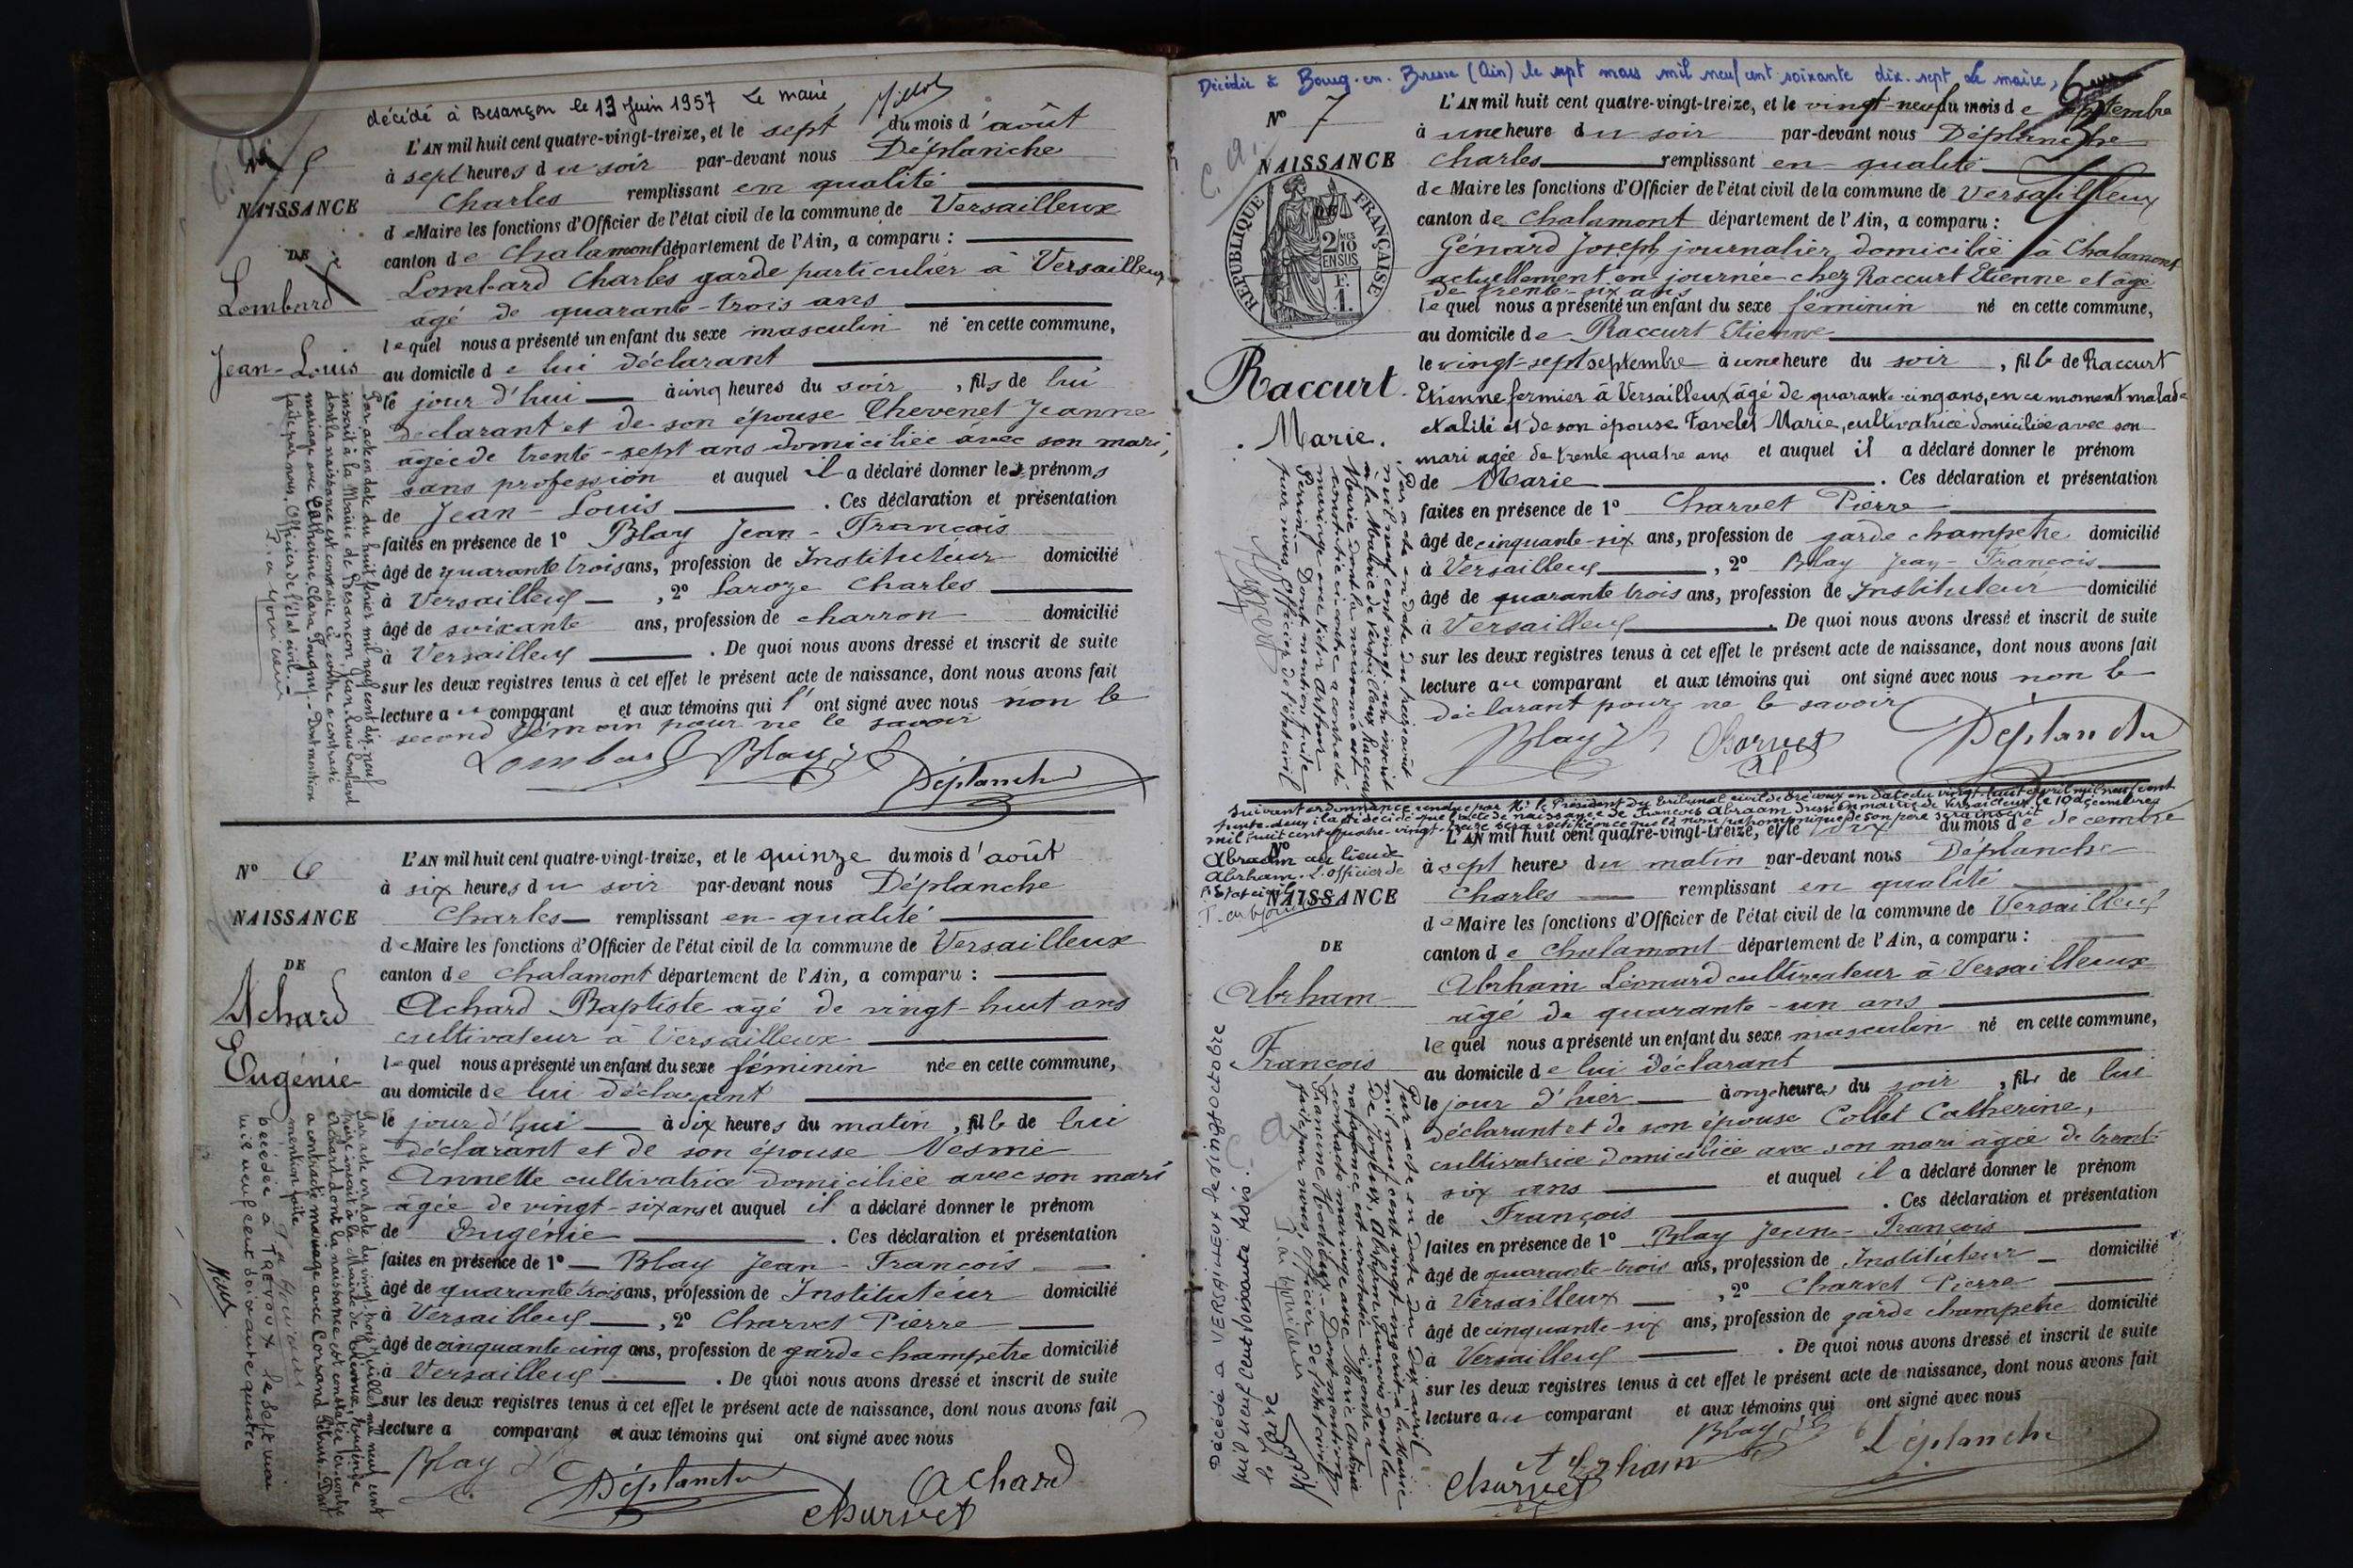 décédé à Besançon le 13 Juin 1957 Le maire
N° 5
NAISSANCE
DE
Lombard
Jean-Louis
L'AN mil huit cent quatre-vingt-treize, et le sept du mois d'août
à sept heures du soir par-devant nous Déplanche
Charles remplissant en qualité
de Maire les fonctions d'Officier de l'état civil de la commune de Versailleux
canton de Chalamont département de l'Ain, a comparu :
Lombard Charles garde particulier à Versailleux
âgé de quarante-trois ans
lequel nous a présenté un enfant du sexe masculin né en cette commune,
au domicile de lui déclarant
le jour d'hui à cinq heures du soir, fils de lui
déclarant et de son épouse Thevenet Jeanne
âgée de trente-sept ans domiciliée avec son mari,
sans profession et auquel il a déclaré donner les prénoms
de Jean-Louis. Ces déclaration et présentation
faites en présence de 1° Blay Jean-François
âgé de quarante trois ans, profession de Instituteur domicilié
à Versailleux, 2° Laroze Charles
âgé de soixante ans, profession de charron domicilié
à Versailleux. De quoi nous avons dressé et inscrit de suite
sur les deux registres tenus à cet effet le présent acte de naissance, dont nous avons fait
lecture au comparant et aux témoins qui l'ont signé avec nous non le
second témoin pour ne le savoir
Lombard Blay Déplanche
Par acte en date du huit février mil neuf cent dix-neuf
inscrit à la Mairie de Besançon, Jean-Louis Lombard
dont la naissance est constatée ci-contre a contracté
mariage avec Catherine Clara Pougny - Dont mention
faite par nous, Officier de l'état civil.-
N° 6
NAISSANCE
DE
Achard
Eugénie
L'AN mil huit cent quatre-vingt-treize, et le quinze du mois d'août
à six heures du soir par-devant nous Déplanche
Charles remplissant en qualité
de Maire les fonctions d'Officier de l'état civil de la commune de Versailleux
canton de Chalamont département de l'Ain, a comparu :
Achard Baptiste âgé de vingt-huit ans
cultivateur à Versailleux
lequel nous a présenté un enfant du sexe féminin née en cette commune,
au domicile de lui déclarant
le jour d'hui à dix heures du matin, fille de lui
déclarant et de son épouse Nesme
Annette cultivatrice domiciliée avec son mari
âgée de vingt-six ans et auquel il a déclaré donner le prénom
de Eugénie. Ces déclaration et présentation
faites en présence de 1° Blay Jean-François
âgé de quarante trois ans, profession de Instituteur domicilié
à Versailleux, 2° Charvet Pierre
âgé de cinquante cinq ans, profession de garde champêtre domicilié
à Versailleux. De quoi nous avons dressé et inscrit de suite
sur les deux registres tenus à cet effet le présent acte de naissance, dont nous avons fait
lecture a comparant et aux témoins qui ont signé avec nous
Blay Déplanche Achard
Charvet
Par acte en date du vingt-trois juillet mil neuf cent
Achard dont la naissance est constatée ci-contre
a contracté mariage avec Corrand
mention faite
Décédée à TREVOUX le sept mai
mil neuf cent soixante quatre
Décédée à Bourg-en-Bresse (Ain) le sept mars mil neuf cent soixante dix-sept Le maire,
N° 7
C. A.
NAISSANCE
DE
RÉPUBLIQUE FRANÇAISE
2/10 EN SUS
Raccurt
Marie.
L'AN mil huit cent quatre-vingt-treize, et le vingt-neuf du mois de septembre
à une heure du soir par-devant nous Déplanche
Charles remplissant en qualité
de Maire les fonctions d'Officier de l'état civil de la commune de Versailleux
canton de Chalamont département de l'Ain, a comparu :
Génard Joseph journalier domicilié à Chalamont
actuellement en journée chez Raccurt Etienne et âgé
de trente-six ans
lequel nous a présenté un enfant du sexe féminin né en cette commune,
au domicile de Raccurt Etienne
le vingt-sept septembre à une heure du soir, fille de Raccurt
Etienne fermier à Versailleux âgé de quarante-cinq ans, en ce moment malade
et alité et de son épouse Favelet Marie, cultivatrice domiciliée avec son
mari agée de trente quatre ans et auquel il a déclaré donner le prénom
de Marie. Ces déclaration et présentation
faites en présence de 1° Charvet Pierre
âgé de cinquante-six ans, profession de garde champetre domicilié
à Versailleux, 2° Blay Jean-François
âgé de quarante trois ans, profession de Instituteur domicilié
à Versailleux. De quoi nous avons dressé et inscrit de suite
sur les deux registres tenus à cet effet le présent acte de naissance, dont nous avons fait
lecture au comparant et aux témoins qui ont signé avec nous non le
déclarant pour ne le savoir
Blay Charvet Déplanche
Par acte en date du treize août
mil neuf cent vingt un inscrit
à la Mairie de Versailleux, Raccurt
Marie dont la naissance est
constatée ci-contre a contracté
mariage avec Victor Arthur
Perrin - Dont mention faite
par nous, Officier de l'état civil
Suivant ordonnance rendue par Mr le Président du tribunal civil de Trévoux en date du vingt-huit avril mil neuf cent
trente-deux il a été décidé que l'acte de naissance de François Abraam dressé en mairie de Versailleux le 10 décembre
mil huit cent quatre-vingt-treize sera rectifié en ce que le nom patronymique de son père sera inscrit
Abraam au lieu de
Abrham. L'officier de
l'état civil
N°
NAISSANCE
DE
Abrham
François
L'AN mil huit cent quatre-vingt-treize, et le dix du mois de décembre
à sept heures du matin par-devant nous Déplanche
Charles remplissant en qualité
de Maire les fonctions d'Officier de l'état civil de la commune de Versailleux
canton de Chalamont département de l'Ain, a comparu :
Abrham Léonard cultivateur à Versailleux
âgé de quarante-un ans
lequel nous a présenté un enfant du sexe masculin né en cette commune,
au domicile de lui déclarant
le jour d'hier à onze heures du soir, fils de lui
déclarant et de son épouse Collet Catherine,
cultivatrice domiciliée avec son mari âgée de trente-
six ans et auquel il a déclaré donner le prénom
de François. Ces déclaration et présentation
faites en présence de 1° Blay Jean-François
âgé de quarante-trois ans, profession de Instituteur domicilié
à Versailleux, 2° Charvet Pierre
âgé de cinquante-six ans, profession de garde champetre domicilié
à Versailleux. De quoi nous avons dressé et inscrit de suite
sur les deux registres tenus à cet effet le présent acte de naissance, dont nous avons fait
lecture au comparant et aux témoins qui ont signé avec nous
Blay Déplanche
Abrham
Charvet
Par acte en date du dix avril
mil neuf cent vingt-
de Joyeux, Abrham François dont la
naissance est constatée ci-contre a
contracté mariage avec Marie Antonia
Francine - Dont mention
faite par nous, Officier de l'état civil
Décédé à VERSAILLEUX le vingt octobre
mil neuf cent soixante trois.
le Maire